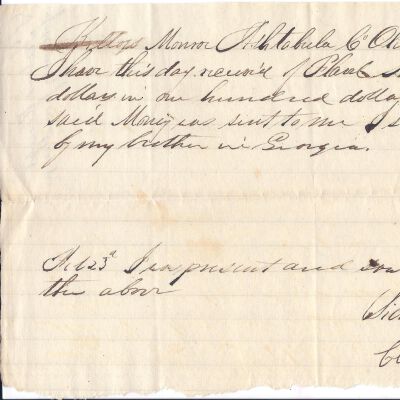 Monroe Ashtabula Co Oh
I have this day receivd of
dollars in one hundred dolla
said Money was sent to me
by my brother in Georgia.
Feb 23d I was present and
the above